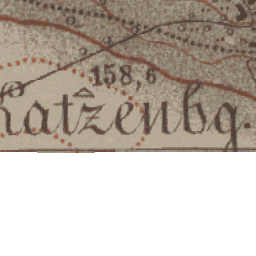 158,6
Katzenbg.